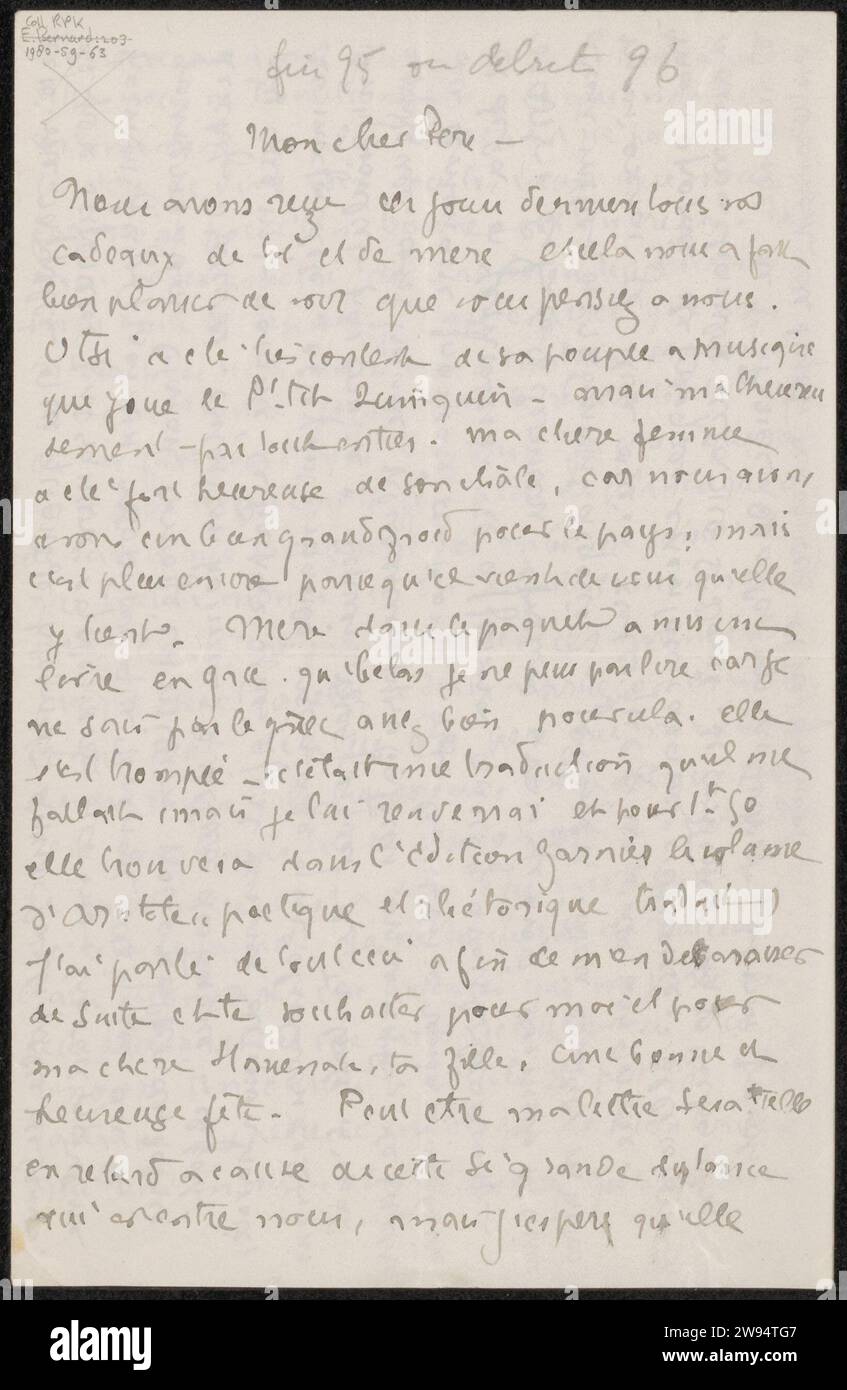 Coll RPK
E. Bernard: 203
1980-59-63
fin 95 ou debut 96
Mon cher Pere —
Nous avons reçu ces jours derniers tous vos
cadeaux de toi et de mere et cela nous a fait
bien plaisir de voir que vous pensiez a nous.
a été très content de sa poupée a musique
qui joue le P'tit Quinquin – mais malheureu
sement – pas tout entier. Ma chere femme
a été fort heureuse de son châle, car nous avons
avons un bien grand froid pour le pays, mais
c'est plus encore parce qu'il vient de vous qu'elle
y tient. Mere dans le paquet a mis un
livre en grec. qu'helas je ne peux pas lire car je
ne sais pas le grec assez bien pour cela. elle
s'est trompée – c'était une traduction qu'il me
fallait mais je lui renverrai et pour 1 fr 50
elle trouvera dans l'édition Garnier le volume
d'Aristote, poetique et rhétorique
J'ai parlé de tout ceci afin de m'en debarasser
de suite et te souhaiter pour moi et pour
ma chere ta fille, une bonne et
heureuse fête. Peut etre ma lettre sera t'elle
en retard a cause de cette si grande distance
qui est entre nous, mais j'espere qu'elle
alamy
alamy
alamy
alamy
Image ID: 2W94TG7
www.alamy.com